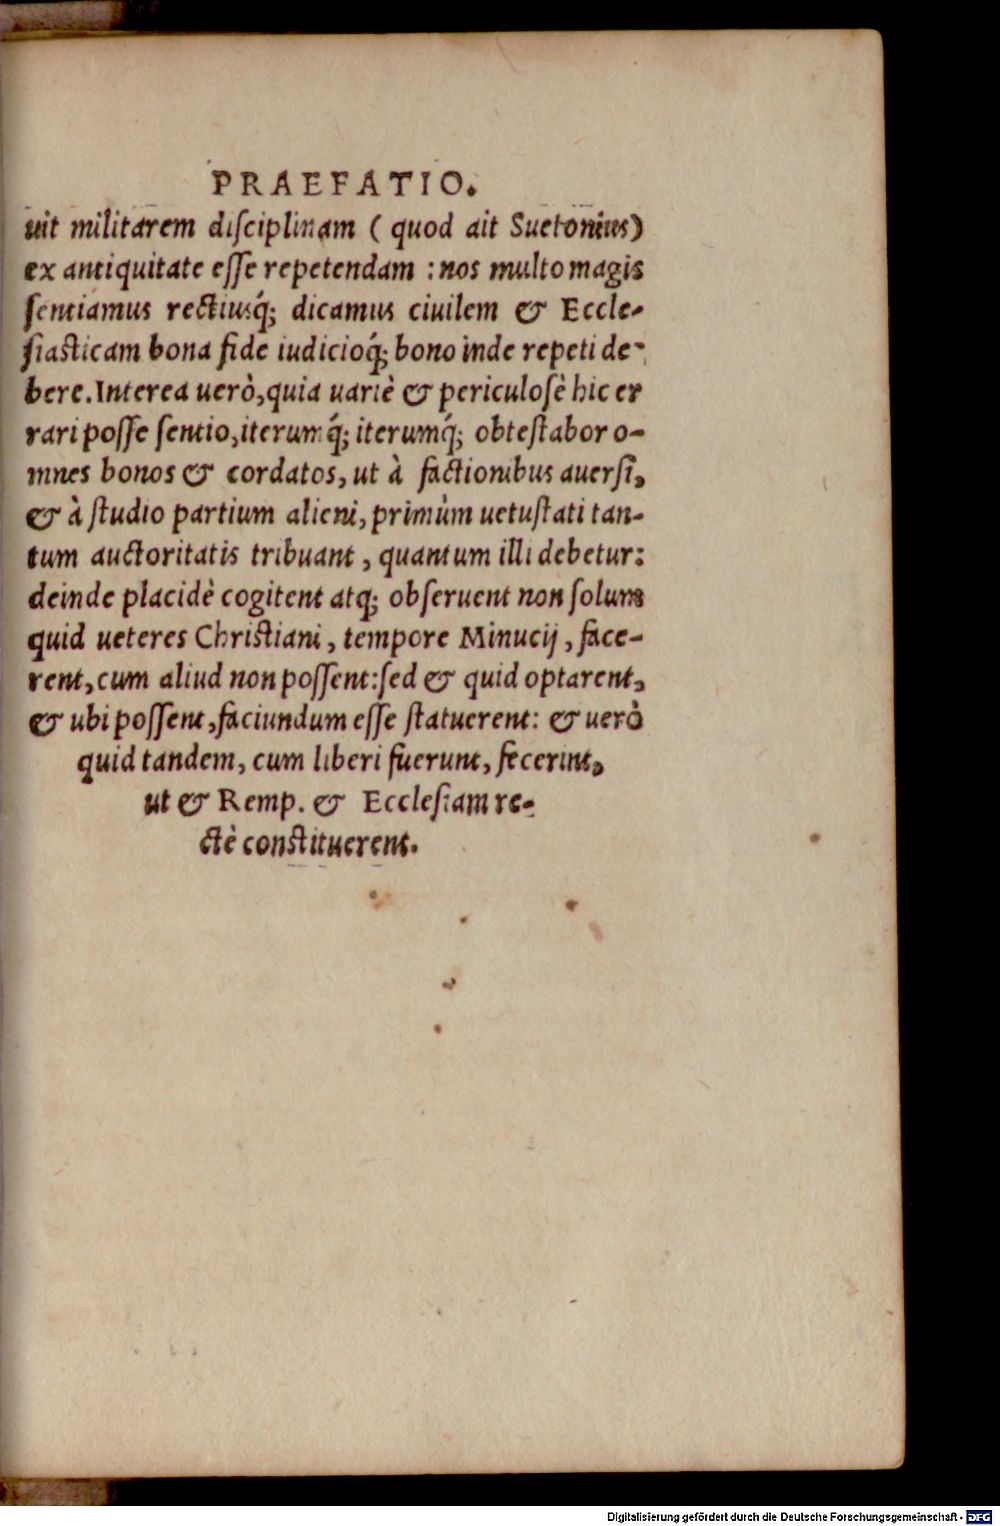 PRAEFATIO.
uit militarem diſciplinam ( quod ait Suetonius)
ex antiquitate eſſe repetendam : nos multo magis
ſentiamus rectiusq́; dicamus ciuilem & Eccle-
ſiaſticam bona fide iudicioq́; bono inde repeti de-
bere. Interea uerò, quia uariè & periculoſè hic er
rari poſſe ſentio, iterumq́; iterumq́; obteſtabor o-
mnes bonos & cordatos, ut à factionibus auerſi,
& à ſtudio partium alieni, primùm uetuſtati tan-
tum auctoritatis tribuant , quantum illi debetur:
deinde placidè cogitent atq; obſeruent non ſolum
quid ueteres Chriſtiani , tempore Minucij , face-
rent, cum aliud non poſſent: ſed & quid optarent,
& ubi poſſent, faciundum eſſe ſtatuerent: & uerò
quid tandem, cum liberi fuerunt, fecerint,
ut & Remp. & Eccleſiam re-
ctè conſtituerent.
Digitalisierung gefördert durch die Deutsche Forschungsgemeinschaft - DFG